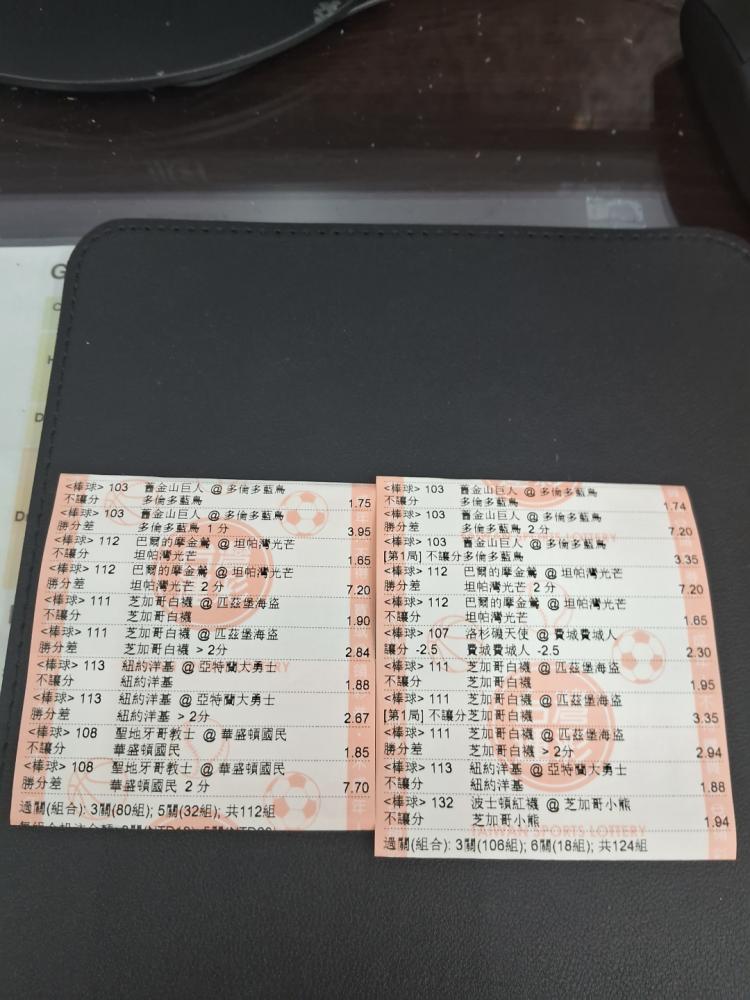 G
D
<棒球> 103 舊金山巨人 @ 多倫多藍鳥
不讓分 多倫多藍鳥 1.75
<棒球> 103 舊金山巨人 @ 多倫多藍鳥
勝分差 多倫多藍鳥 1 分 3.95
<棒球> 112 巴爾的摩金鶯 @ 坦帕灣光芒
不讓分 坦帕灣光芒 1.65
<棒球> 112 巴爾的摩金鶯 @ 坦帕灣光芒
勝分差 坦帕灣光芒 2 分 7.20
<棒球> 111 芝加哥白襪 @ 匹茲堡海盜
不讓分 芝加哥白襪 1.90
<棒球> 111 芝加哥白襪 @ 匹茲堡海盜
勝分差 芝加哥白襪 > 2分 2.84
<棒球> 113 紐約洋基 @ 亞特蘭大勇士
不讓分 紐約洋基 1.88
<棒球> 113 紐約洋基 @ 亞特蘭大勇士
勝分差 紐約洋基 > 2分 2.67
<棒球> 108 聖地牙哥教士 @ 華盛頓國民
不讓分 華盛頓國民 1.85
<棒球> 108 聖地牙哥教士 @ 華盛頓國民
勝分差 華盛頓國民 2 分 7.70
過關(組合): 3關(80組); 5關(32組); 共112組
<棒球> 103 舊金山巨人 @ 多倫多藍鳥
不讓分 多倫多藍鳥 1.74
<棒球> 103 舊金山巨人 @ 多倫多藍鳥
勝分差 多倫多藍鳥 2 分 7.20
<棒球> 103 舊金山巨人 @ 多倫多藍鳥
[第1局] 不讓分多倫多藍鳥 3.35
<棒球> 112 巴爾的摩金鶯 @ 坦帕灣光芒
勝分差 坦帕灣光芒 2 分 7.20
<棒球> 112 巴爾的摩金鶯 @ 坦帕灣光芒
不讓分 坦帕灣光芒 1.65
<棒球> 107 洛杉磯天使 @ 費城費城人
讓分 -2.5 費城費城人 -2.5 2.30
<棒球> 111 芝加哥白襪 @ 匹茲堡海盜
不讓分 芝加哥白襪 1.95
<棒球> 111 芝加哥白襪 @ 匹茲堡海盜
[第1局] 不讓分芝加哥白襪 3.35
<棒球> 111 芝加哥白襪 @ 匹茲堡海盜
勝分差 芝加哥白襪 > 2分 2.94
<棒球> 113 紐約洋基 @ 亞特蘭大勇士
不讓分 紐約洋基 1.88
<棒球> 132 波士頓紅襪 @ 芝加哥小熊
不讓分 芝加哥小熊 1.94
TAIWAN SPORTS LOTTERY
過關(組合): 3關(106組); 6關(18組); 共124組